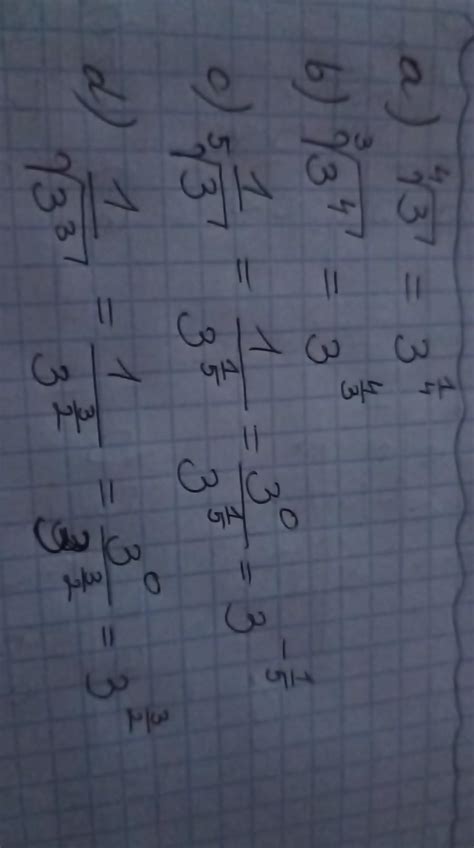 a) ⁴√3 = 3^(1/4)
b) ³√(3⁴) = 3^(4/3)
c) 1/⁵√3 = 1/3^(1/5) = 3⁰/3^(1/5) = 3^(-1/5)
d) 1/√(3³) = 1/3^(3/2) = 3⁰/3^(3/2) = 3^(3/2)